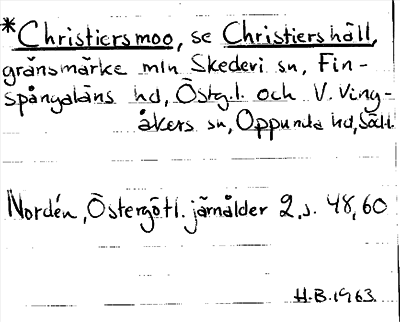 *Christiersmoo, se Christiershäll,
gränsmärke mln Skedevi sn, Fin-
spångaläns hd, Östg.l. och V. Ving-
åkers sn, Oppunda hd, Södl.
Nordén, Östergötl. järnålder 2, s. 48, 60
H.B. 1963.